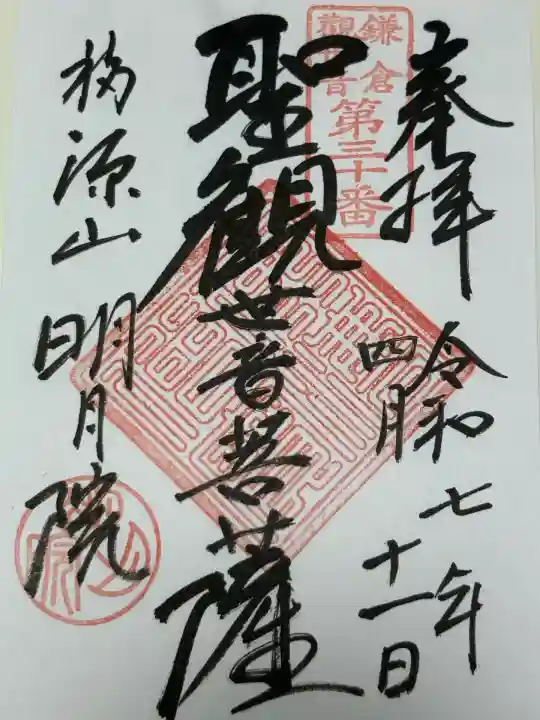 奉拝
令和七年
四月十一日
鎌倉
観世音
第三十番
聖観世音菩薩
福源山
明月院